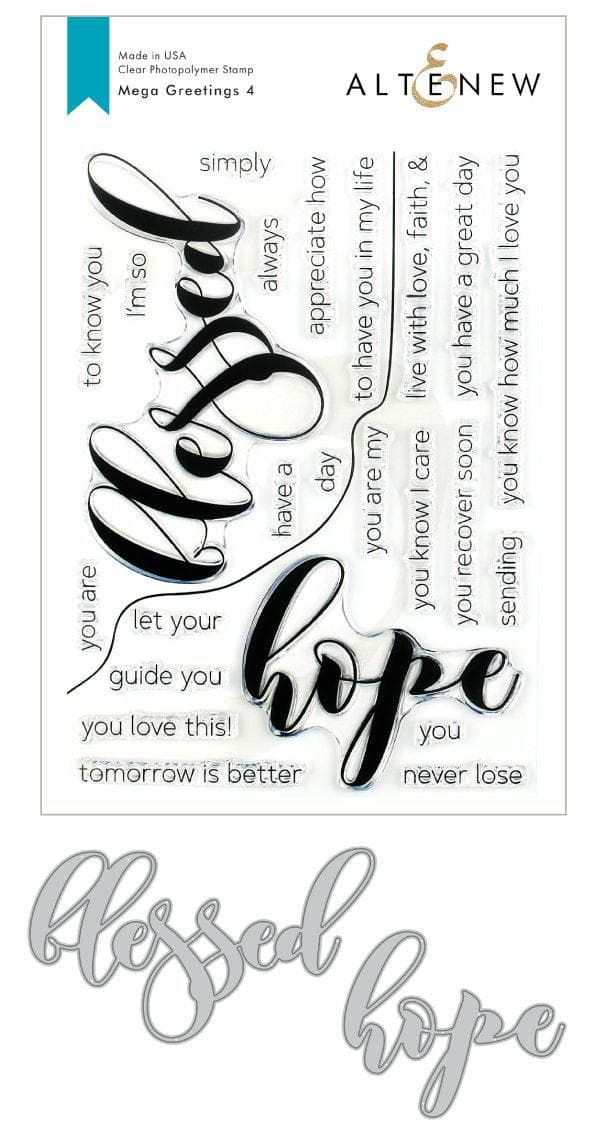 Made in USA
Clear Photopolymer Stamp
Mega Greetings 4
ALTENEW
simply
blessed
to know you
I'm so
always
appreciate how
to have you in my life
live with love, faith, &
you have a great day
you know how much I love you
have a
day
you are my
you know I care
you recover soon
sending
you are
let your
hope
guide you
you love this!
you
tomorrow is better
never lose
blessed
hope